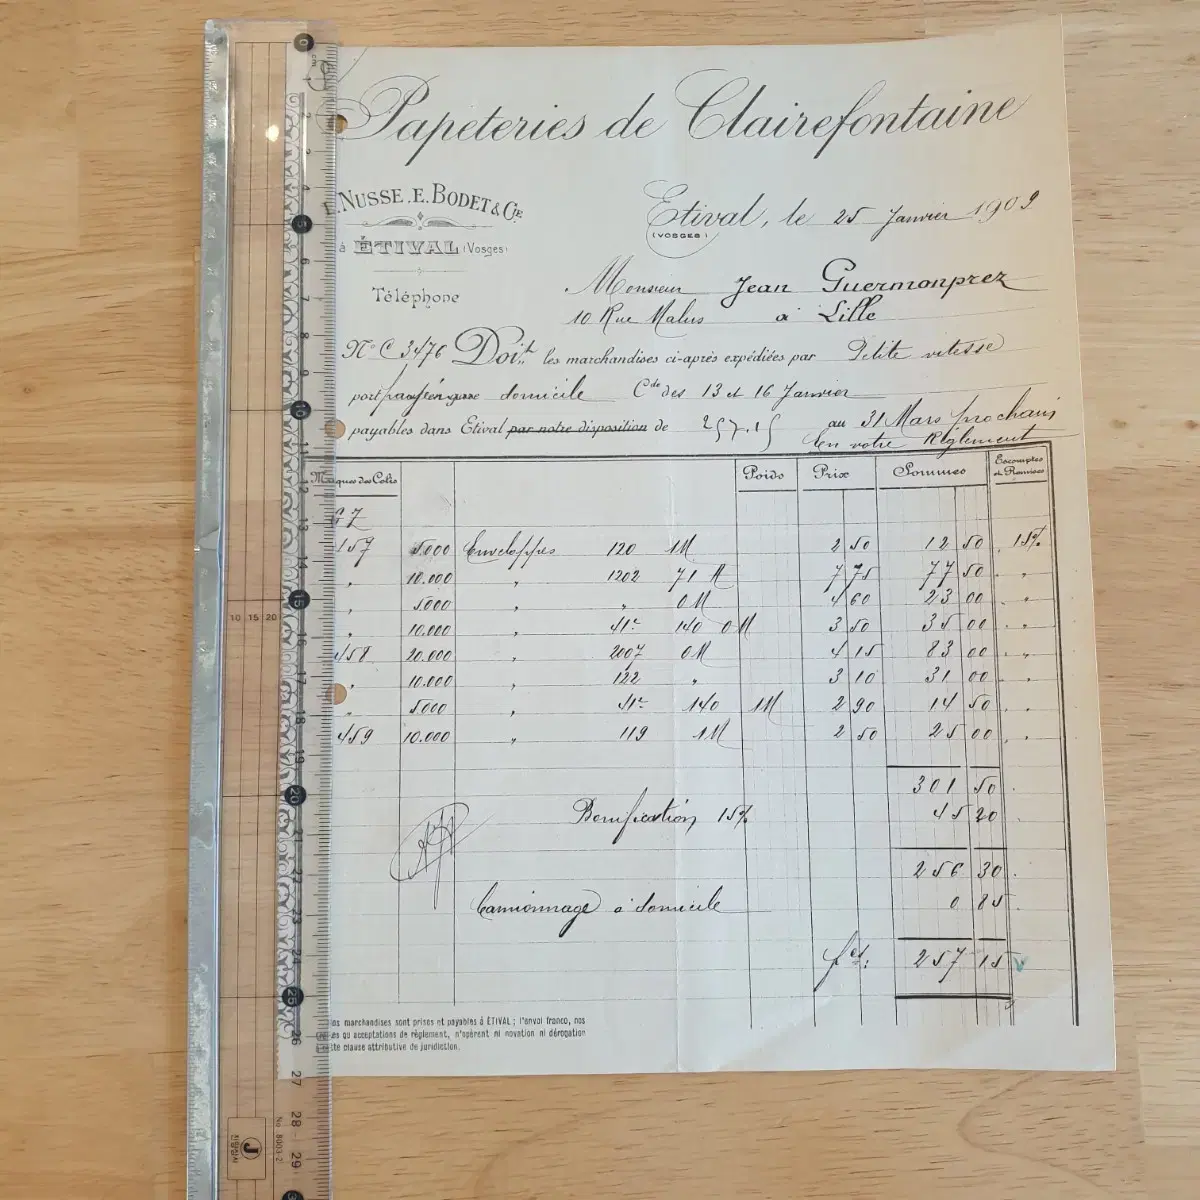 Papeteries de Clairefontaine
NUSSE. E. BODET & Cie
à ÉTIVAL (Vosges)
Téléphone
Etival, le 25 Janvier 1909
(VOSGES)
Monsieur Jean Guermonprez
10 Rue Malus à Lille
N° C 3476 Doit les marchandises ci-après expédiées par Petite vitesse
port domicile Cde des 13 et 16 Janvier
payables dans Etival par notre disposition de 257.15 au 31 Mars prochain
en votre Règlement
Marques des Colis Poids Prix Sommes Escomptes et Remises
G Z
457 5.000 Enveloppes 120 1M 2 50 12 50 15%
" 10.000 " 1202 71 M 7 75 77 50 "
" 5.000 " " 0M 4 60 23 00 "
" 10.000 " 140 0M 3 50 35 00 "
458 20.000 " 2007 0M 4 15 83 00 "
" 10.000 " 122 " 3 10 31 00 "
" 5.000 " 140 1M 2 90 14 50 "
459 10.000 " 119 1M 2 50 25 00 "
301 50
Bonification 15% 45 20
256 30
Camionnage à domicile 0 85
fcs: 257 15
marchandises sont prises et payables à ÉTIVAL ; l'envoi franco, nos
ou acceptations de règlement, n'opèrent ni novation ni dérogation
clause attributive de juridiction.
0 cm 1 2 3 4 5 6 7 8 9 10 11 12 13 14 15 16 17 18 19 20 21 22 23 24 25 26 27 28 29
10 15 20
No. 8003-2
J